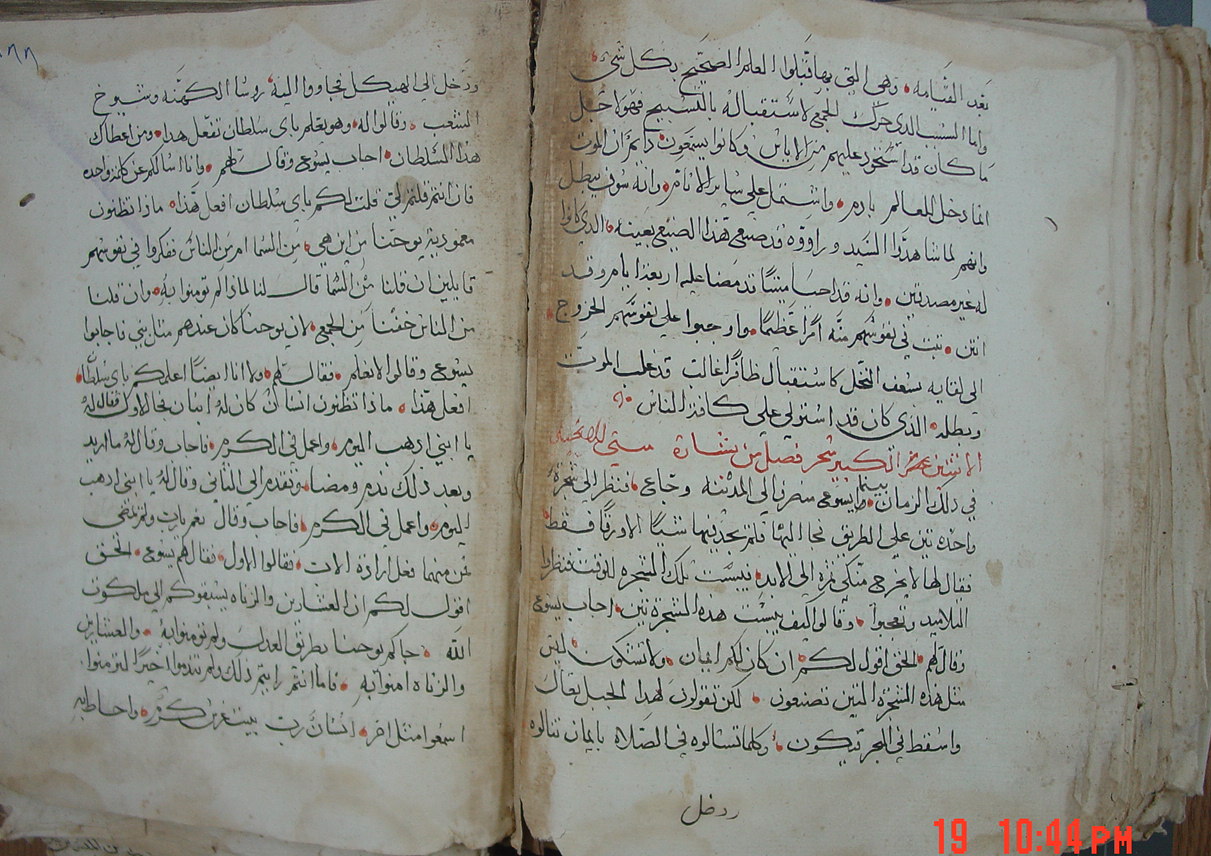 بعد القيامه، وهي التي بها قبلوا العلم الصحيح بكل شي
واما السبب الدي حرك الجمع لاستقباله بالتسبيح فهو اجل
ما كان قد استحود عليهم من الاياس وكانوا يسمعون دايم ان الموت
انما دخل العالم بادم، واشتمل علي ساير الانام، وانه سوف يبطل
وانهم لما شاهدوا السيد وراووه قد صنع هدا الصنيع بعينه، الدي كانوا
له غير مصدقين، وانه قد احيا ميتًا قد مضا عليه اربعة ايام وقد
انتن، تبت في نفوسهم منه امرًا عظيمًا، واوجبوا علي نفوسهم الخروج
الي لقايه بسعف النخل كاستقبال ظافرًا غالب قد غلب الموت
وبطله، الدي كان قد استولي علي كافة الناس
الاتنين عشر الكبير سحر فصل من بشارة متي الانجيلي
في دلك الزمان، بينما يسوع صير الي المدينه وجاع، فنظر الي شجرة
واحده تين علي الطريق نحا اليها فلم يجد فيها شيًا الا ورقًا فقط
فقال لها لا يخرج منكي تمرة الي الابد، فيبست تلك الشجره للوقت فنظروا
التلاميد وتعجبوا، وقالوا كيف يبست هده الشجرة تين، اجاب يسوع
وقال لهم، الحق اقول لكم، ان كان لكم ايمان، ولا تشكون، ليس
متل هده الشجره التين تصنعون، لكن تقولون لهدا الجبل تعال
واسقط في البحر فيكون، وكلما تسالوه في الصلاه بايمان تنالوه
ودخل الي الهيكل فجاووا اليه، روسا الكهنه وشيوخ
الشعب، وقالوا له، وهو يعلم باي سلطان تفعل هدا، ومن اعطاك
هدا السلطان، اجاب يسوع وقال لهم، وانا اسالكم عن كلمة واحده
فان انتم قلتم لي قلت لكم باي سلطان افعل هدا، مادا تظنون
معمودية يوحنا من اين هي، من السما ام من الناس ففكروا في نفوسهم
قايلين ان قلنا من السما قال لنا لمادا لم تومنوا به، وان قلنا
من الناس خفنا من الجمع، لان يوحنا كان عندهم متل نبي، فاجابوا
يسوع وقالوا لا نعلم، فقال لهم، ولا انا ايضًا اعلمكم باي سلطان
افعل هدا، مادا تظنون انسان كان له ابنان فجا الاول فقال له
يا ابني ادهب اليوم، واعمل في الكرم، فاجاب وقال له ما اريد
وبعد دلك ندم ومضا، وتقدم الي التاني وقال له يا ابني ادهب
اليوم، واعمل في الكرم، فاجاب وقال نعم يارب ولم يمضي
فمن منهما فعل ارادة الاب، فقالوا الاول، فقال لهم يسوع، الحق
اقول لكم ان العشارين والزناه يسبقوكم الي ملكوت
الله، جاكم يوحنا بطريق العدل ولم تومنوا به، والعشارين
والزناه امنوا به، فاما انتم رايتم دلك ولم تندموا اخيرًا لتومنوا
اسمعوا متل اخر، انسان رب بيت غرس كرم، واحاط به
19 10:44 PM